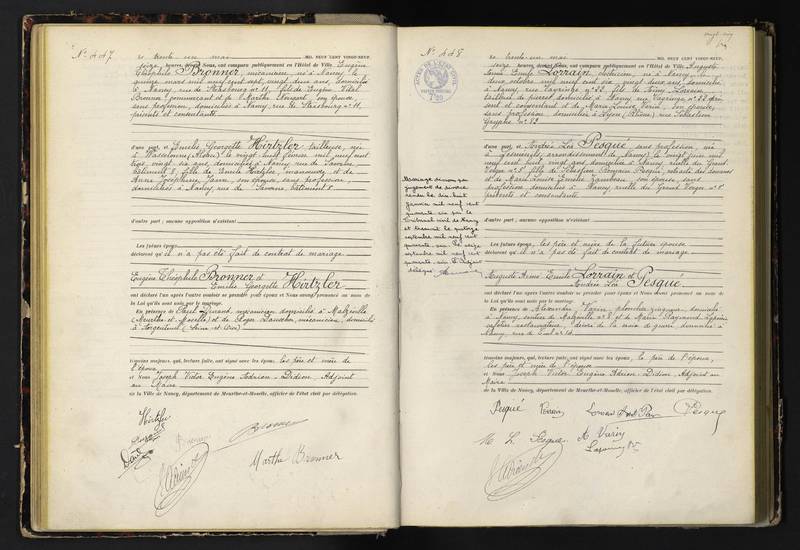 N° 447
Le trente un mai MIL NEUF CENT VINGT-NEUF,
heures, devant Nous, ont comparu publiquement en l'Hôtel de Ville Eugène
Théophile Bronner, mécanicien, né à Nancy le
quinze mars mil neuf cent sept, vingt deux ans, domicilié
à Nancy, rue de Strasbourg n° 11, fils de Eugène
Bronner et de Marthe son épouse
sans profession, domiciliés à Nancy rue de Strasbourg n° 11,
présents et consentants
d'une part, et Emilie Georgette Hirtzler, tailleuse, née
à le vingt février mil neuf cent
trois, vingt six ans, domiciliée à Nancy rue de Saverne,
bâtiment 8, fille de Emile Hirtzler, manœuvre et de
Anne Joséphine son épouse, sans profession,
domiciliés à Nancy rue de Saverne, bâtiment 8
d'autre part ; aucune opposition n'existant
Les futurs époux
déclarent qu'il n'a pas été fait de contrat de mariage.
Eugène Théophile Bronner et
Emilie Georgette Hirtzler
ont déclaré l'un après l'autre vouloir se prendre pour époux et Nous avons prononcé au nom de
la Loi qu'ils sont unis par le mariage.
En présence de Paul mécanicien domicilié à Malzéville
(Meurthe et Moselle) et de Roger mécanicien, domicilié
à Argenteuil (Seine et Oise)
témoins majeurs, qui, lecture faite, ont signé avec les époux, les père et mère de
l'époux
et Nous Joseph Victor Eugène Adrien Didion Adjoint
au Maire
de la Ville de Nancy, département de Meurthe-et-Moselle, officier de l'état civil par délégation.
Hirtzler
Bronner
Bronner
Marthe Bronner
N° 448
Le trente un mai MIL NEUF CENT VINGT-NEUF,
heures, devant Nous, ont comparu publiquement en l'Hôtel de Ville Auguste
Aimé Emile Lorrain, électricien, né à Nancy le
deux octobre mil neuf cent six, vingt deux ans, domicilié
à Nancy, rue n° 22, fils de Lorrain,
tailleur de pierres domicilié à Nancy rue n° 22
sent et consentant et de Marie Louise son épouse,
sans profession, domiciliée à Lyon (Rhône) rue Sébastien
Gryphe n° 89
d'une part, et Andrée Léa Pesqué sans profession, née
à arrondissement de Nancy le vingt juin mil
neuf cent huit, vingt ans, domiciliée à Nancy ruelle du Grand
Verger n° 8 fille de Sébastien Romain Pesqué, retraité des douanes
et de Marie Lucie Emilie son épouse, sans
profession, domiciliés à Nancy ruelle du Grand Verger n° 8
présents et consentants
Mariage dissous par
jugement de divorce
rendu le dix-huit
janvier mil neuf cent
quarante par le
Tribunal civil de Nancy
et transcrit le quatorze
septembre mil neuf cent
quarante Le seize
septembre mil neuf cent
quarante
délégué
d'autre part ; aucune opposition n'existant
Les futurs époux, les père et mère de la future épouse
déclarent qu'il n'a pas été fait de contrat de mariage.
Auguste Aimé Emile Lorrain et
Andrée Léa Pesqué
ont déclaré l'un après l'autre vouloir se prendre pour époux et Nous avons prononcé au nom de
la Loi qu'ils sont unis par le mariage.
En présence de Alexandre plombier zingueur, domicilié
à Nancy, sentier de Malzéville n° 8 et de Marie Raymond
décoré de la croix de guerre, domicilié à
Nancy, rue de n° 16
témoins majeurs, qui, lecture faite, ont signé avec les époux, le père de l'époux,
les père et mère de l'épouse
et Nous Joseph Victor Eugène Adrien Didion Adjoint au
Maire
de la Ville de Nancy, département de Meurthe-et-Moselle, officier de l'état civil par délégation.
Pesqué Lorrain Pesqué
M. L. Pesqué